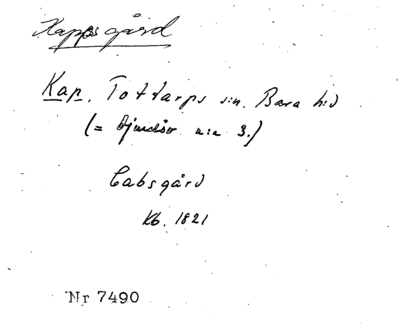 Kappsgård
Kap. Tottarps sn. Bara hd
(= Djurslöv n:o 3.)
Cabsgård
Kb. 1821
Nr 7490